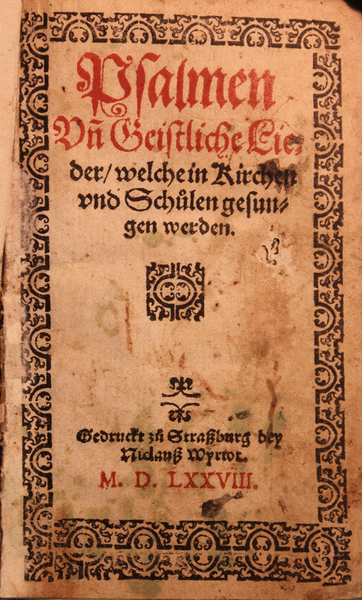 Psalmen
Vñ Geistliche Lie-
der/ welche in Kirchen
vnd Schůlen gesun-
gen werden.
Gedruckt zů Straßburg bey
Niclauß Wyriot.
M. D. LXXVIII.